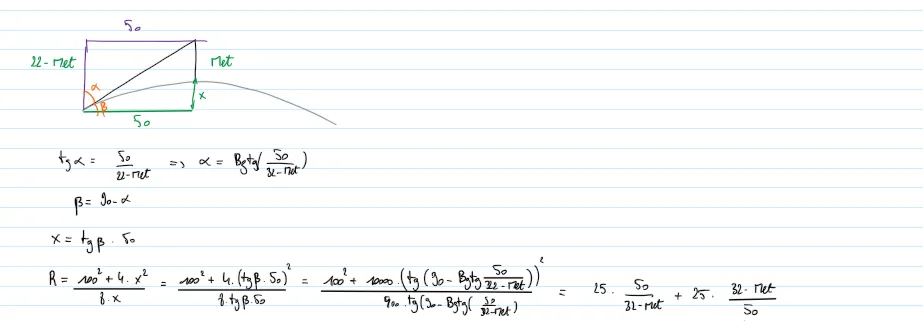 50
22-met met
α
β x
50
tg α = 50/22-met => α = Bgtg(50/32-met)
β = 90-α
x = tg β . 50
R = 100² + 4. x² / 8. x = 100² + 4. (tg β. 50)² / 8. tg β. 50 = 100² + 10000. (tg (90 - Bgtg 50/32-met))² / 400. tg (90 - Bgtg (50/32-met) = 25. 50/32-met + 25. 32-met/50